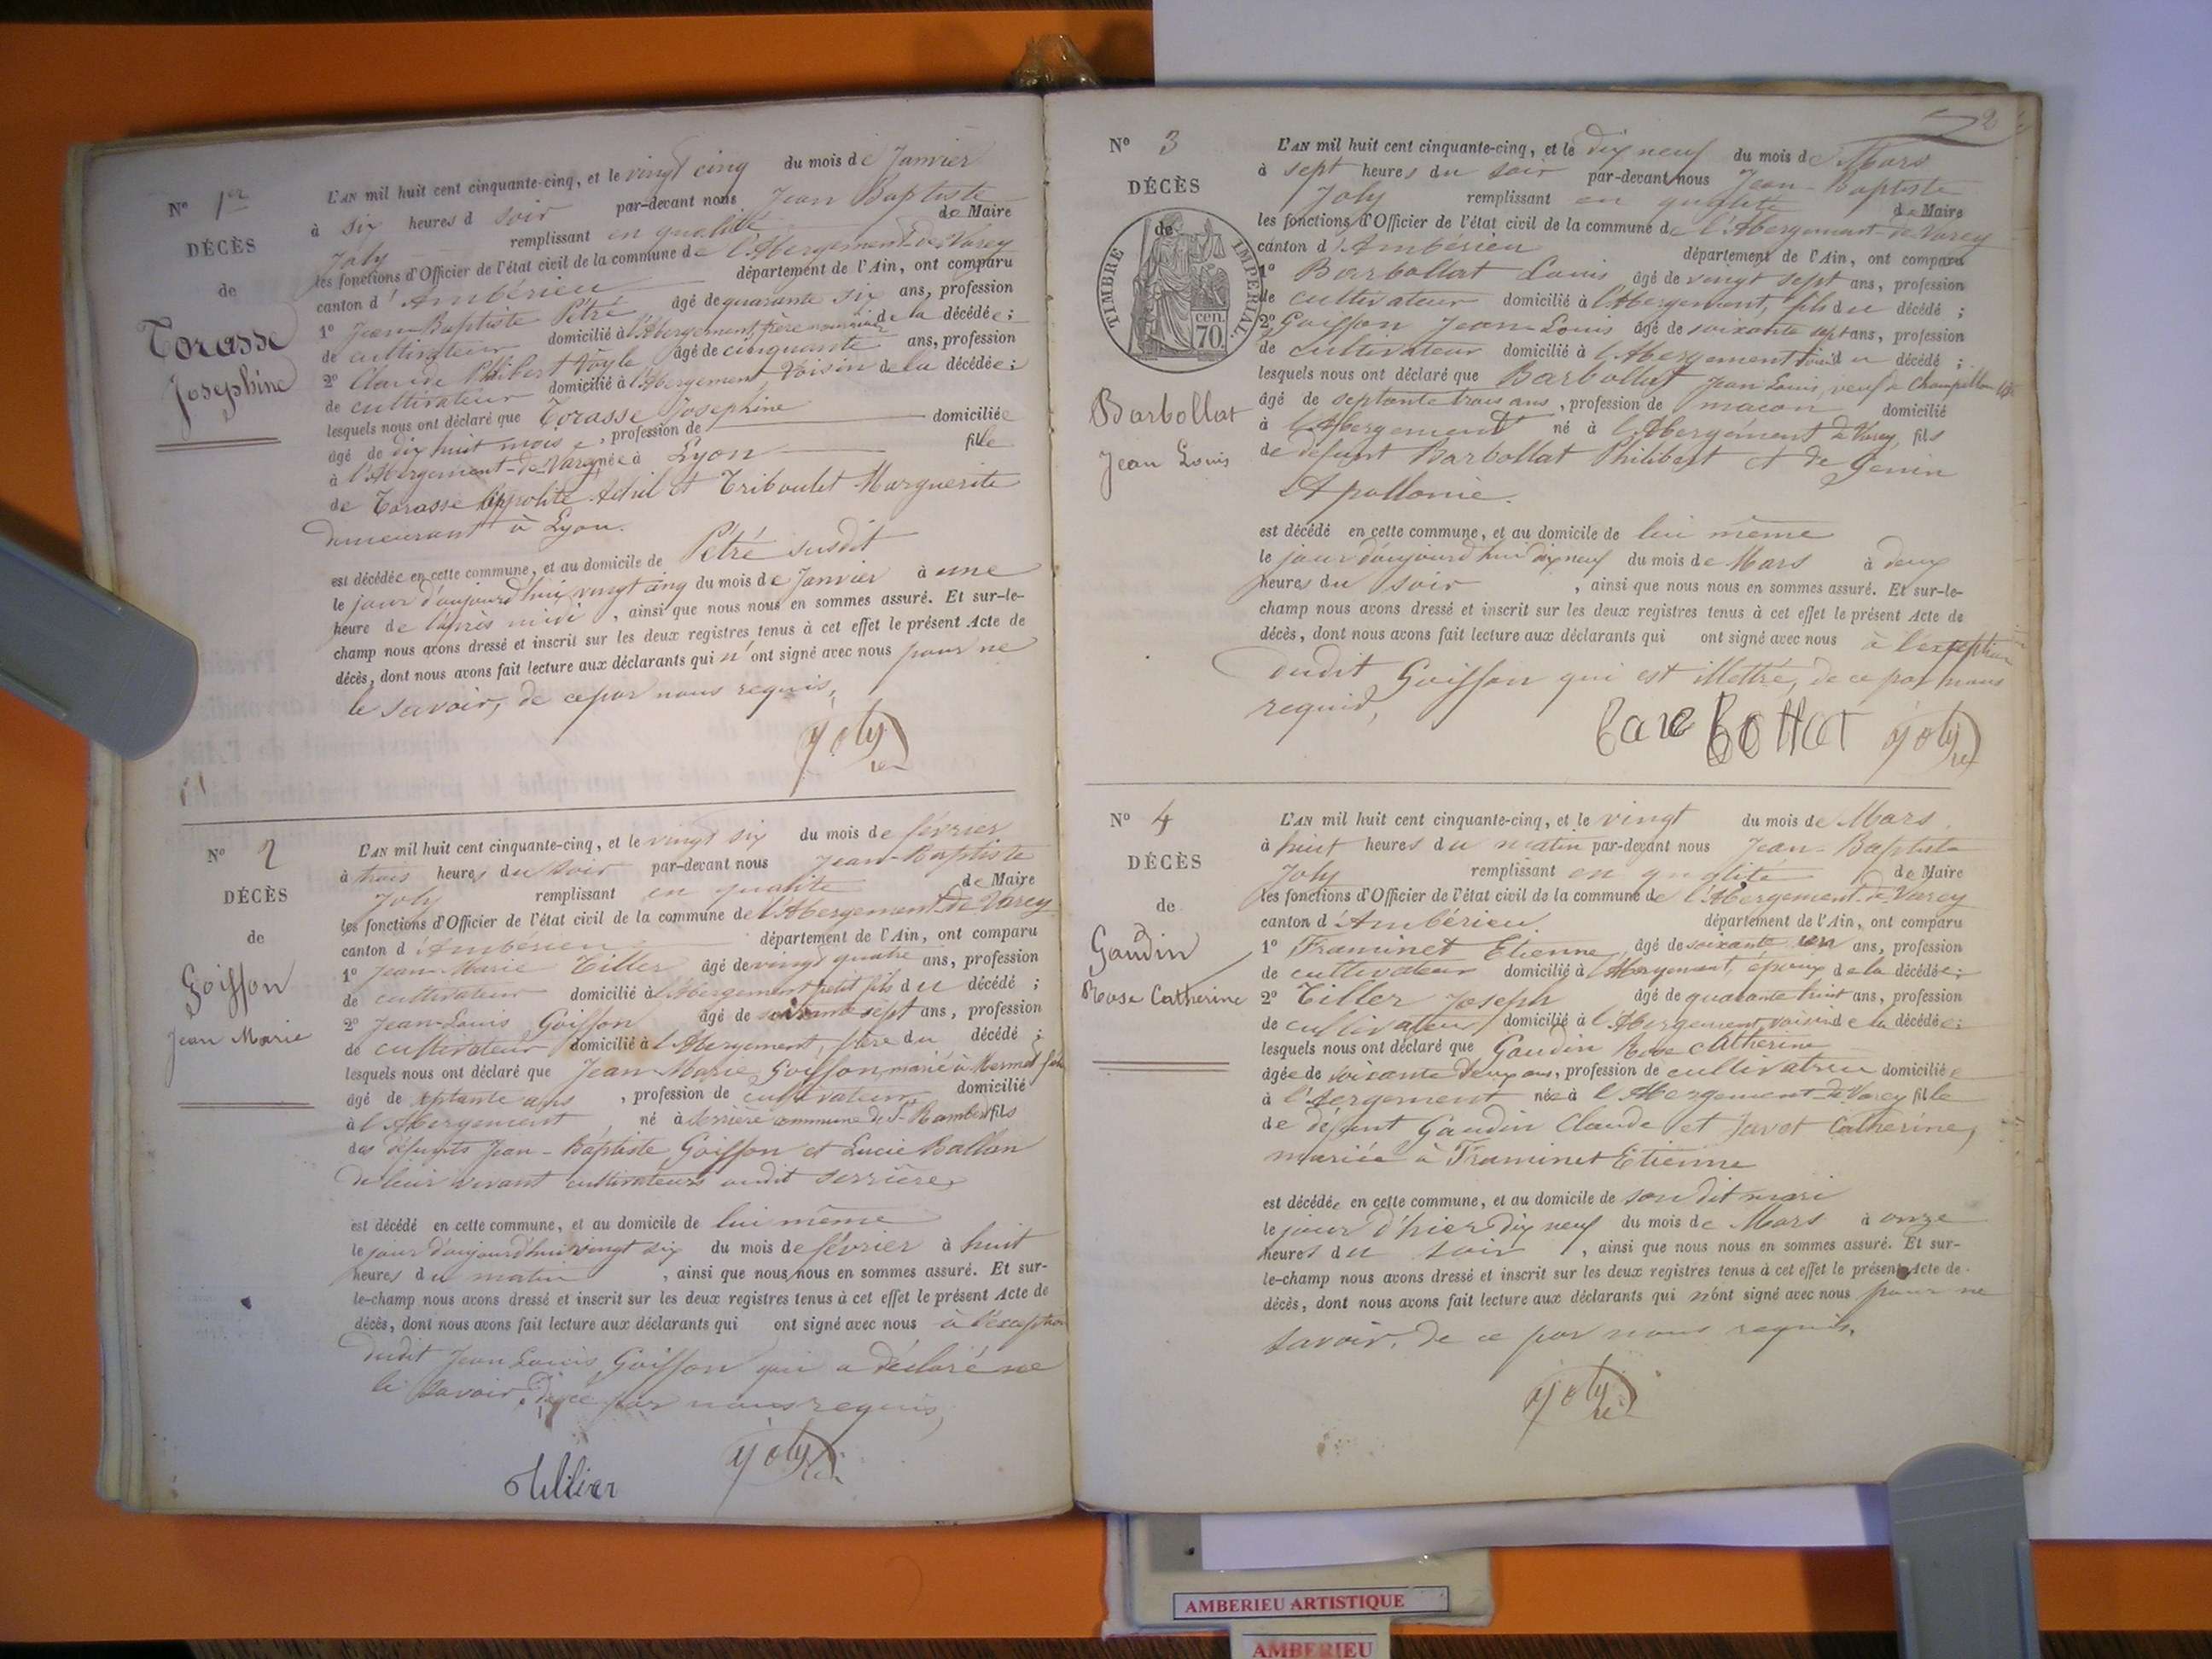 N° 1er
DÉCÈS
de
Torasse
Josephine
L'AN mil huit cent cinquante-cinq, et le vingt cinq du mois de Janvier
à six heures d soir par-devant nous Jean Baptiste
Joly remplissant en qualité de Maire
les fonctions d'Officier de l'état civil de la commune de l'Abergement-de-Varey
canton d'Ambérieu département de l'Ain, ont comparu
1° Jean-Baptiste Pétré âgé de quarante six ans, profession
de cultivateur domicilié à l'Abergement, père nourricier de la décédée;
2° Claude Philibert Vayle âgé de cinquante ans, profession
de cultivateur domicilié à l'Abergement, Voisin de la décédée;
lesquels nous ont déclaré que Torasse Josephine
âgé de dix huit mois, profession de domiciliée
à l'Abergement-de-Varey née à Lyon fille
de Torasse et Triboulet Marguerite
demeurant à Lyon.
est décédée en cette commune, et au domicile de Pétré susdit
le jour d'aujourd'hui vingt cinq du mois de Janvier à une
heure de l'après midi, ainsi que nous nous en sommes assuré. Et sur-le-
champ nous avons dressé et inscrit sur les deux registres tenus à cet effet le présent Acte de
décès, dont nous avons fait lecture aux déclarants qui n'ont signé avec nous pour ne
le savoir, de ce par nous requis,
Joly
N° 2
DÉCÈS
de
Goiffon
Jean Marie
L'AN mil huit cent cinquante-cinq, et le vingt six du mois de février
à trois heures du soir par-devant nous Jean-Baptiste
Joly remplissant en qualité de Maire
les fonctions d'Officier de l'état civil de la commune de l'Abergement-de-Varey
canton d'Ambérieu département de l'Ain, ont comparu
1° Jean-Marie Tiller âgé de vingt quatre ans, profession
de cultivateur domicilié à l'Abergement petit fils du décédé;
2° Jean-Louis Goiffon âgé de soixante sept ans, profession
de cultivateur domicilié à l'Abergement, frère du décédé;
lesquels nous ont déclaré que Jean-Marie Goiffon, marié à Mermet
âgé de septante ans, profession de cultivateur domicilié
à l'Abergement né à Serrière commune de St Rambert fils
des défunts Jean-Baptiste Goiffon et Lucie Ballan
de leur vivant cultivateurs audit Serrière,
est décédé en cette commune, et au domicile de lui même
le jour d'aujourd'hui vingt six du mois de février à huit
heures du matin, ainsi que nous nous en sommes assuré. Et sur-
le-champ nous avons dressé et inscrit sur les deux registres tenus à cet effet le présent Acte de
décès, dont nous avons fait lecture aux déclarants qui ont signé avec nous à l'exception
dudit Jean Louis Goiffon qui a déclaré ne
le savoir, de ce par nous requis,
Joly
Tillier
2
N° 3
DÉCÈS
de
TIMBRE IMPERIAL
cen.
70.
Barbollat
Jean Louis
L'AN mil huit cent cinquante-cinq, et le dix neuf du mois de Mars
à sept heures du soir par-devant nous Jean-Baptiste
Joly remplissant en qualité de Maire
les fonctions d'Officier de l'état civil de la commune de l'Abergement-de-Varey
canton d'Ambérieu département de l'Ain, ont comparu
1° Barbollat Louis âgé de vingt sept ans, profession
de cultivateur domicilié à l'Abergement, fils du décédé;
2° Goiffon Jean-Louis âgé de soixante sept ans, profession
de cultivateur domicilié à l'Abergement du décédé;
lesquels nous ont déclaré que Barbollat Jean Louis, veuf de
âgé de septante trois ans, profession de maçon domicilié
à l'Abergement né à l'Abergement de Varey, fils
de défunt Barbollat Philibert et de Genin
Apollonie.
est décédé en cette commune, et au domicile de lui même
le jour d'aujourd'hui dix neuf du mois de Mars à deux
heures du soir, ainsi que nous nous en sommes assuré. Et sur-le-
champ nous avons dressé et inscrit sur les deux registres tenus à cet effet le présent Acte de
décès, dont nous avons fait lecture aux déclarants qui ont signé avec nous à l'exception
dudit Goiffon qui est illettré, de ce par nous
requis,
Barebollat Joly
N° 4
DÉCÈS
de
Gaudin
Rose Catherine
L'AN mil huit cent cinquante-cinq, et le vingt du mois de Mars
à huit heures du matin par-devant nous Jean-Baptiste
Joly remplissant en qualité de Maire
les fonctions d'Officier de l'état civil de la commune de l'Abergement-de-Varey
canton d'Ambérieu département de l'Ain, ont comparu
1° Framinet Etienne, âgé de soixante un ans, profession
de cultivateur domicilié à l'Abergement, époux de la décédée;
2° Tiller Joseph âgé de quarante huit ans, profession
de cultivateur domicilié à l'Abergement, voisin de la décédée;
lesquels nous ont déclaré que Gaudin Rose Catherine
âgée de soixante deux ans, profession de cultivatrice domiciliée
à l'Abergement née à l'Abergement-de-Varey fille
de défunt Gaudin Claude et Javot Catherine,
mariée à Framinet Etienne
est décédée en cette commune, et au domicile de son dit mari
le jour d'hier dix neuf du mois de Mars à onze
heures du soir, ainsi que nous nous en sommes assuré. Et sur-
le-champ nous avons dressé et inscrit sur les deux registres tenus à cet effet le présent Acte de
décès, dont nous avons fait lecture aux déclarants qui n'ont signé avec nous pour ne
savoir, de ce par nous requis,
Joly
AMBERIEU ARTISTIQUE
AMBERIEU